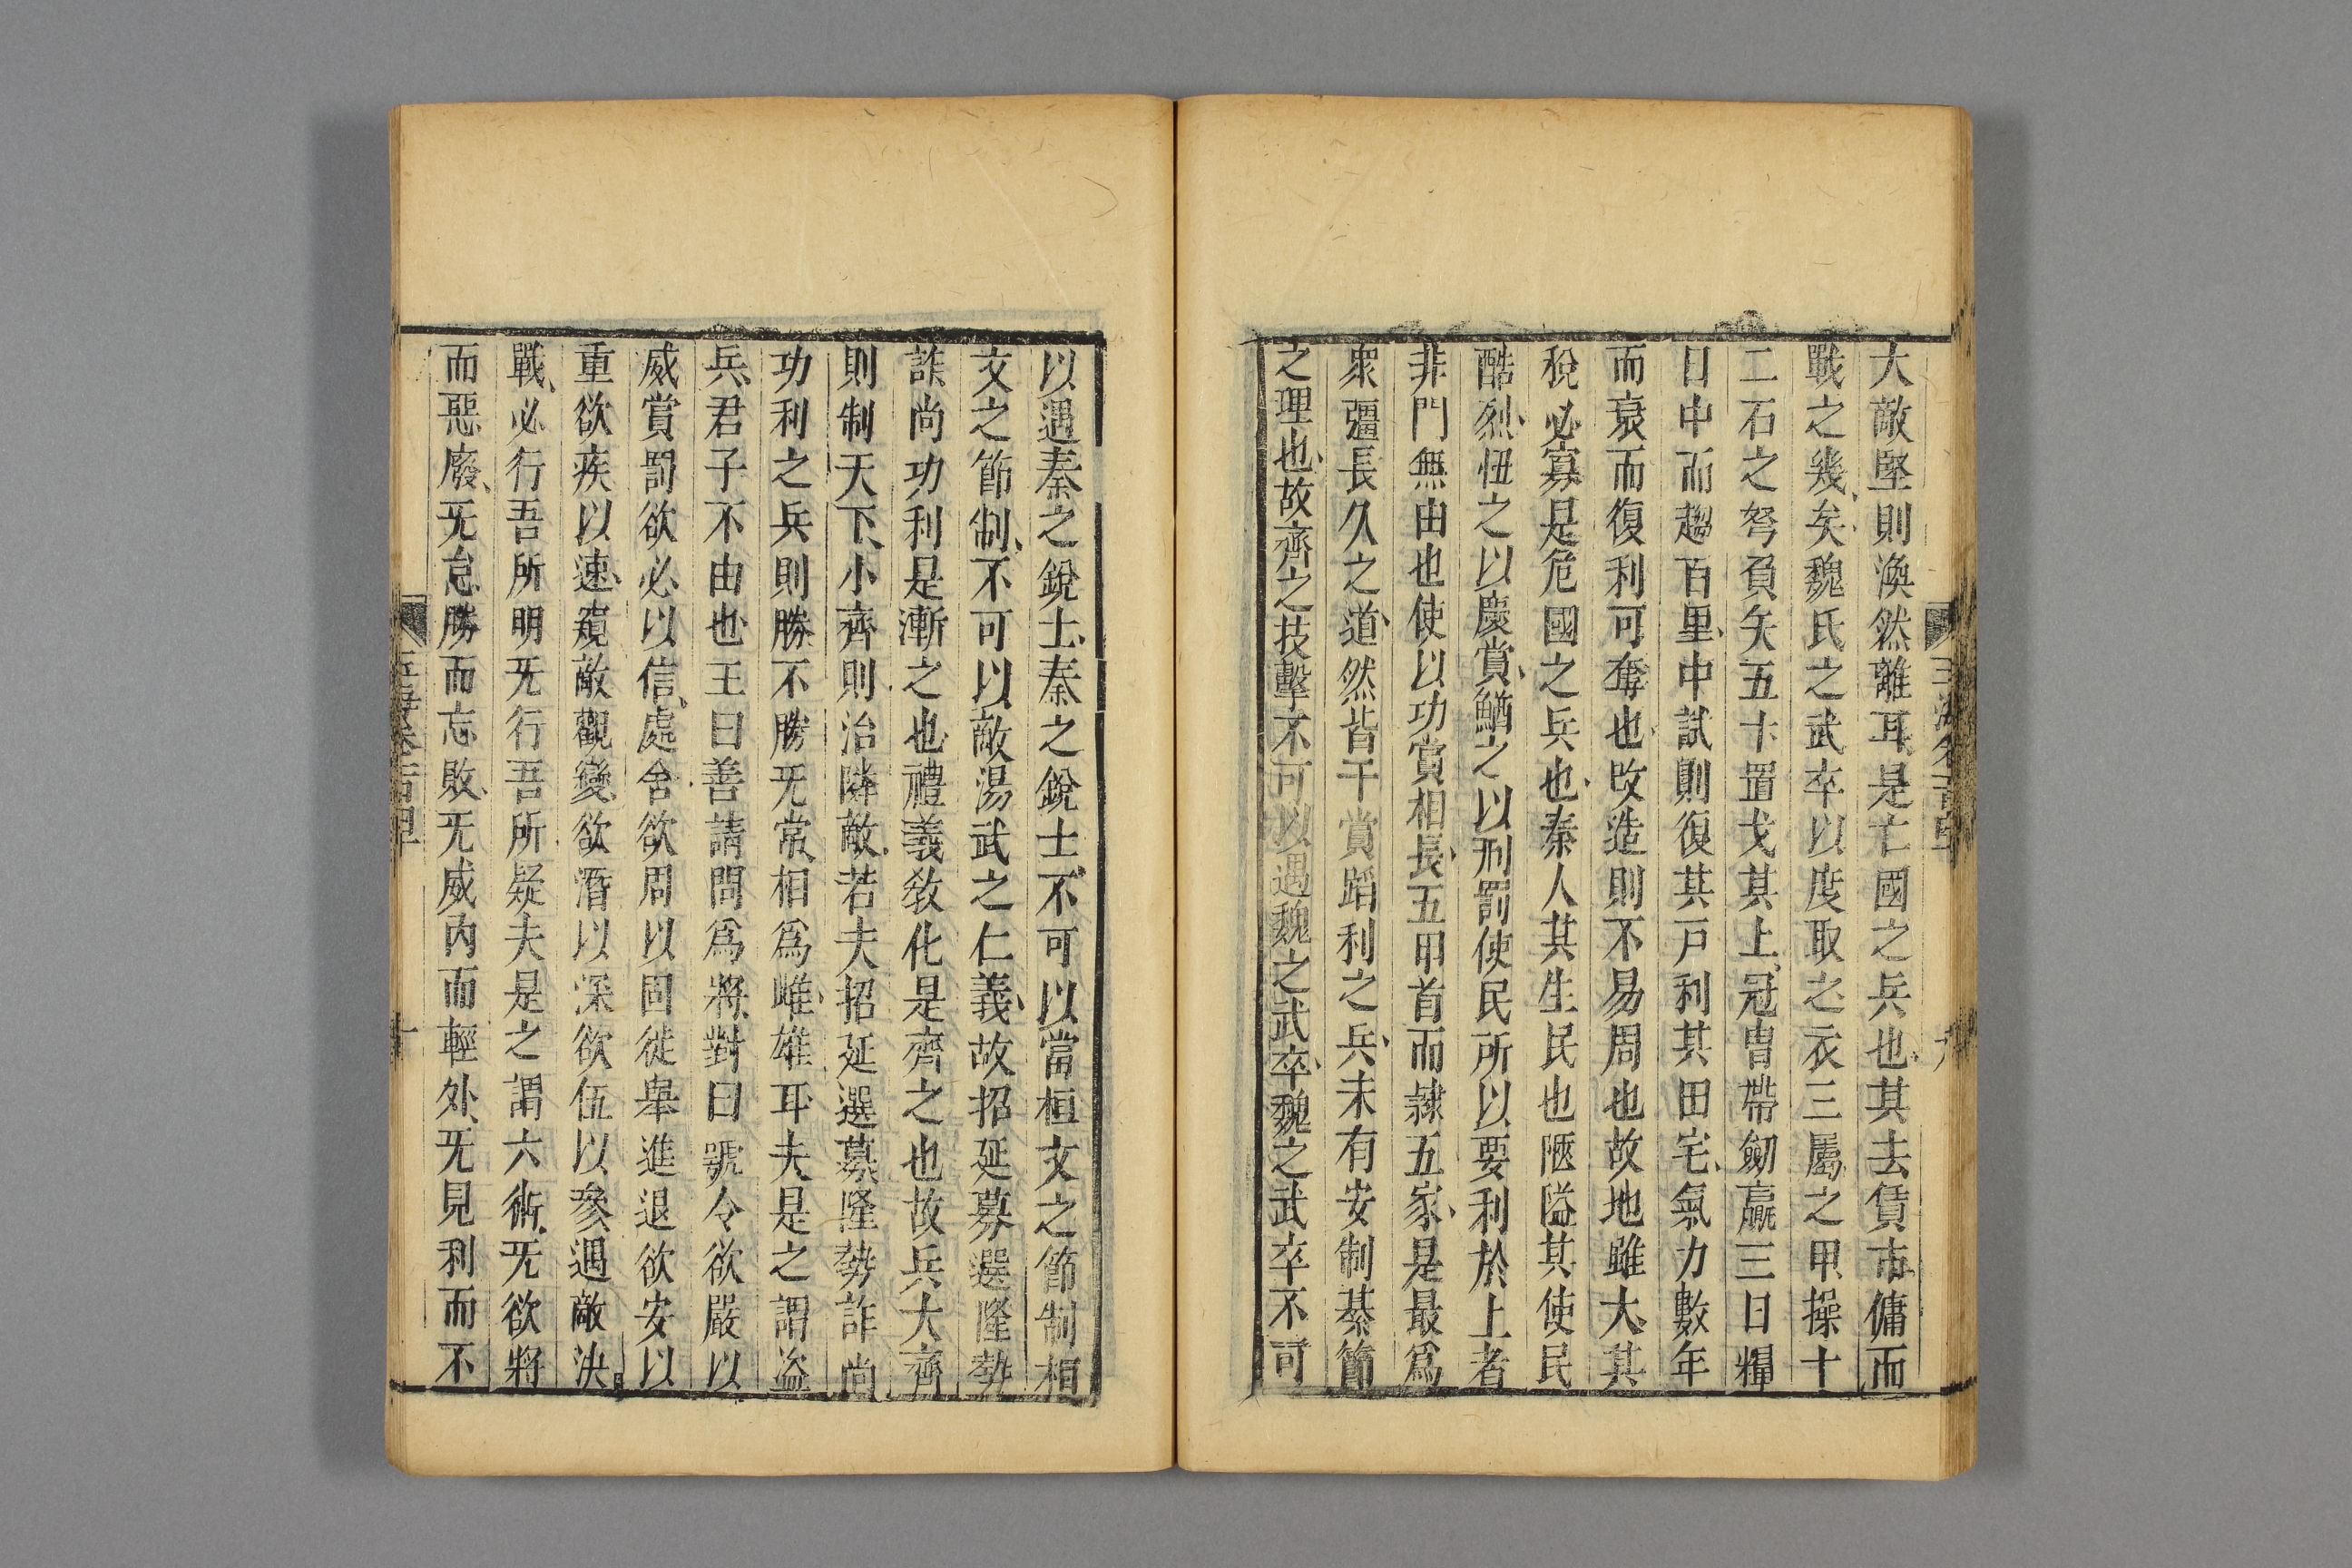 大敵堅則渙然離耳是亡國之兵也其去賃市傭而
戰之幾矣魏氏之武卒以度取之衣三屬之甲操十
二石之弩負矢五十置戈其上冠冑帶劒贏三日糧
日中而趨百里中試則復其戸利其田宅氣力數年
而衰而復利可奪也改造則不易周也故地雖大其
稅必寡是危國之兵也秦人其生民也陿隘其使民
酷烈忸之以慶賞鰌之以刑罰使民所以要利於上者
非鬥無由也使以功賞相長五甲首而隸五家是最爲
衆彊長久之道然皆干賞蹈利之兵未有安制綦節
之理也故齊之技擊不可以遇魏之武卒魏之武卒不可
以遇秦之銳士秦之銳士不可以當桓文之節制桓
文之節制不可以敵湯武之仁義故招延募選隆勢
詐尚功利是漸之也禮義敎化是齊之也故兵大齊
則制天下小齊則治隣敵若夫招延選募隆勢詐尚
功利之兵則勝不勝无常相爲雌雄耳夫是之謂盜
兵君子不由也王曰善請問爲將對曰號令欲嚴以
威賞罰欲必以信處舍欲周以固徙舉進退欲安以
重欲疾以速窺敵觀變欲潛以深欲伍以參遇敵決
戰必行吾所明无行吾所疑夫是之謂六術无欲將
而惡廢无怠勝而忘敗无威內而輕外无見利而不
十